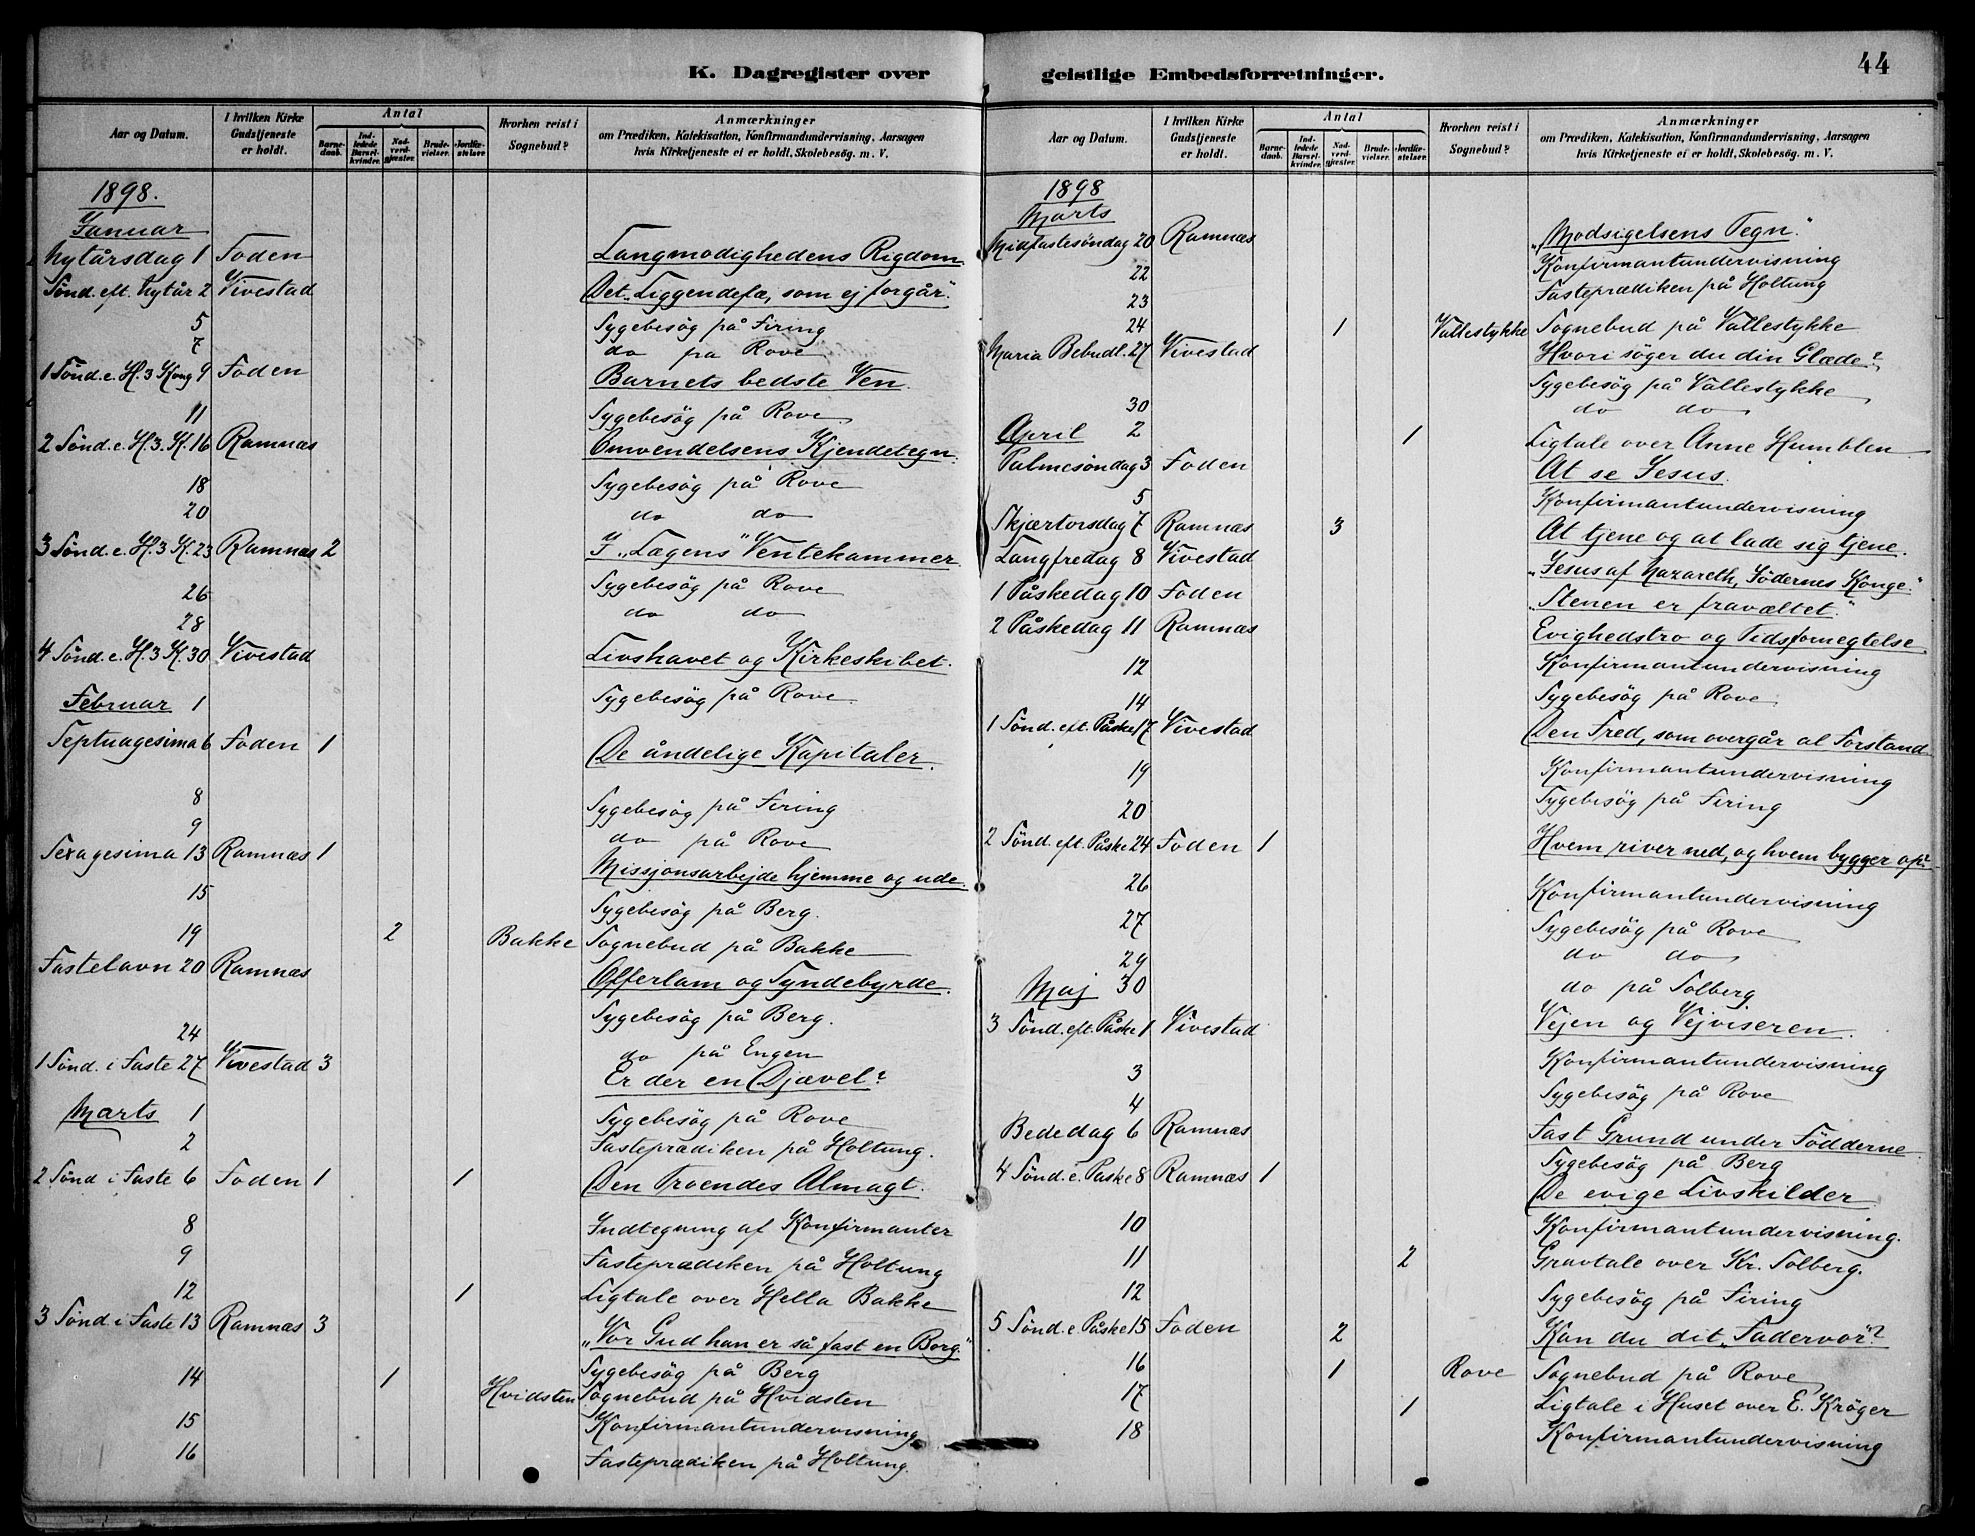 K. Dagregister over geistlige Embedsforretninger. 44
Aar og Datum. | I hvilken Kirke Gudstjeneste er holdt. | Antal | Barnedaab. | Indledede Barselkvinder. | Nadverdgjester. | Brudevielser. | Jordfæstelser. | Hvorhen reist i Sognebud? | Anmærkninger om Prædiken, Katekisation, Konfirmandundervisning, Aarsagen hvis Kirketjeneste ei er holdt, Skolebesøg. m. V.
1898.
Januar
Nytårsdag 1 Foden Langmodighedens Rigdom.
Sønd. eft. Nytår 2 Vivestad Det „Liggendefæ, som ej forgår“.
5 Sygebesög på Firing
7 do på Rove
1 Sønd. e. H. 3 Kong 9 Foden Barnets bedste Ven.
11 Sygebesög på Rove
2 Sønd. e. H. 3. K. 16 Ramnæs Omvendelsens Kjendetegn.
18 Sygebesög på Rove
20 do do
3 Sønd. e. H. 3 K. 23 Ramnæs 2 I „Lægens“ Ventekammer
26 Sygebesög på Rove
28 do do
4 Sønd. e. H. 3 K. 30 Vivestad Livshavet og Kirkeskibet.
Februar 1 Sygebesög på Rove.
Septuagesima 6 Foden 1 De åndelige Kapitaler.
8 Sygebesög på Firing
9 do på Rove
Sexagesima 13 Ramnæs 1 Missjonsarbejde hjemme og ude.
15 Sygebesög på Berg.
19 2 Bakke Sognebud på Bakke
Fastelavn 20 Ramnæs Offerlam og Syndebyrde.
Sygebesög på Berg.
24 do på Engen
1 Sønd. i Faste 27 Vivestad 3 Er der en Djævel?
Marts 1 Sygebesög på Rove
2 Fasteprædiken på Holtung.
2 Sønd i Faste 6 Foden 1 1 Den Troendes Almagt.
8 Indtegning af Konfirmanter
9 Fasteprædiken på Holtung
12 1 Ligtale over Hella Bakke
3 Sønd i Faste 13 Ramnæs 3 „Vor Gud han er så fast en Borg.“
14 1 Sygebesög på Berg
Hvidsten Sognebud på Hvidsten
15 Konfirmantundervisning
16 Fasteprædiken på Holtung.
Aar og Datum. | I hvilken Kirke Gudstjeneste er holdt. | Antal | Barnedaab. | Indledede Barselkvinder. | Nadverdgjester. | Brudevielser. | Jordfæstelser. | Hvorhen reist i Sognebud? | Anmærkninger om Prædiken, Katekisation, Konfirmandundervisning, Aarsagen hvis Kirketjeneste ei er holdt, Skolebesøg. m. V.
1898
Marts
Midfastesöndag 20 Ramnæs „Modsigelsens Tegn“.
22 Konfirmantundervisning
23 Fasteprædiken på Holtung
24 1 Vallestykke Sognebud på Vallestykke
Maria Bebudl. 27 Vivestad Hvori söger du din Glæde?
Sygebesög på Vallestykke
30 do do
April 2 1 Ligtale over Anne Humblen
Palmesöndag 3 Foden At se Jesus.
5 Konfirmantundervisning
Skjærtorsdag 7 Ramnæs 3 At tjene og at lade sig tjene.
Langfredag 8 Vivestad „Jesus af Nazareth, Jödernes Konge“.
1 Påskedag 10 Foden „Stenen er fravæltet.“
2 Påskedag 11 Ramnæs Evighedstro og Tidsfornegtelse.
12 Konfirmantundervisning
14 Sygebesög på Rove
1 Sønd. eft. Påske 17 Vivestad Den Fred, som overgår al Forstand
19 Konfirmantundervisning
20 Sygebesög på Firing
2 Sønd. eft. Påske 24 Foden 1 Hvem river ned, og hvem bygger op?
26 Konfirmantundervisning
27 Sygebesög på Rove
29 do do
Maj 30 do på Solberg.
3 Sønd. eft. Påske 1 Vivestad Vejen og Vejviseren.
3 Konfirmantundervisning
4 Sygebesög på Rove
Bededag 6 Ramnæs Fast Grund under Födderne
Sygebesög på Berg
4 Sønd. e. Påske 8 Ramnæs 1 De evige Livskilder
10 Konfirmantundervisning.
11 2 Gravtale over Kr. Solberg.
12 Sygebesög på Firing
5 Sønd. e. Påske 15 Foden 2 Kan du dit „Fadervor“?
16 1 Rove Sognebud på Rove
17 1 Ligtale i Huset over E. Kröger
18 Konfirmantundervisning